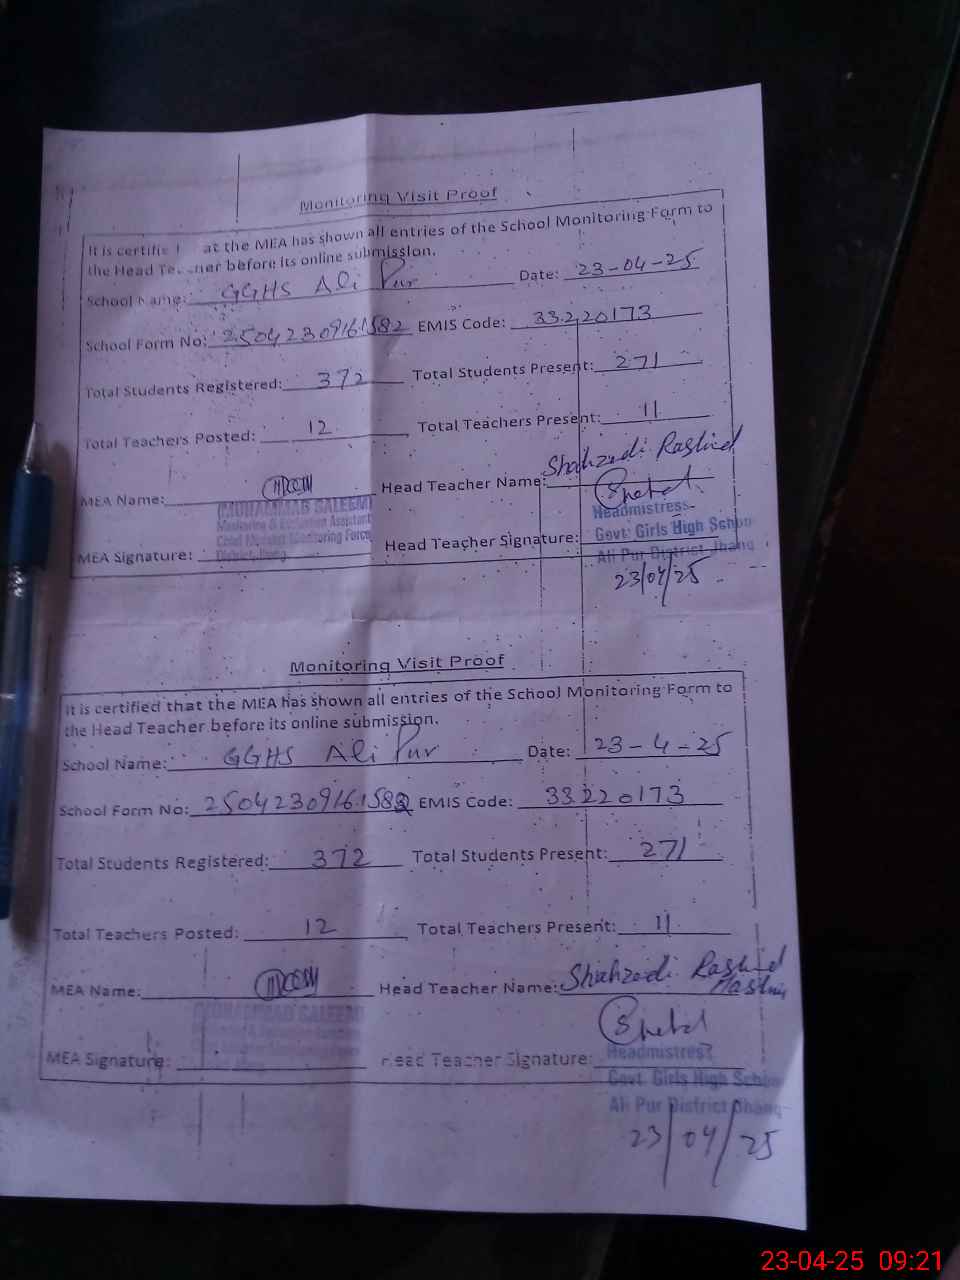 Monitoring Visit Proof
It is certifie at the MEA has shown all entries of the School Monitoring Form to
the Head Teacher before its online submission.
School Name: GGHS Ali Pur Date: 23-04-25
School Form No: 25042309161582 EMIS Code: 33220173
Total Students Registered: 372 Total Students Present: 271
Total Teachers Posted: 12 Total Teachers Present: 11
MEA Name: Head Teacher Name: Shahzadi Rashid
MUHAMMAD SALEEM
Monitoring & Evaluation Assistant
Chief Minister Monitoring Force
District Jhang
MEA Signature: Head Teacher Signature:
Headmistress
Govt: Girls High School
Ali Pur District Jhang
23/04/25
Monitoring Visit Proof
It is certified that the MEA has shown all entries of the School Monitoring Form to
the Head Teacher before its online submission.
School Name: GGHS Ali Pur Date: 23-4-25
School Form No: 25042309161582 EMIS Code: 33220173
Total Students Registered: 372 Total Students Present: 271
Total Teachers Posted: 12 Total Teachers Present: 11
MEA Name: Head Teacher Name: Shahzadi Rashid
MUHAMMAD SALEEM
MEA Signature: Head Teacher Signature:
Headmistress
Govt: Girls High School
Ali Pur District Jhang
23/04/25
23-04-25 09:21